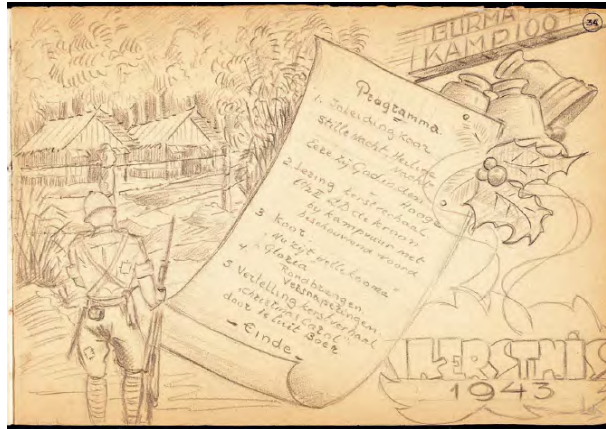 BURMA
KAMP 100
34
Programma
1. Inleiding Koor
Stille Nacht, Heilige
Nacht
Eere zij God in den
Hooge
2. Lezing kerstverhaal
de kraan
by kampvuur met
beschouwend woord
3. Koor
"Nu zijt wellekoome"
4. "Gloria
Rondbrengen
versnaperingen
5. Vertelling kerstverhaal
"Christmas Carol"
door 1e Luit Boer
- Einde -
KERSTMIS
1943